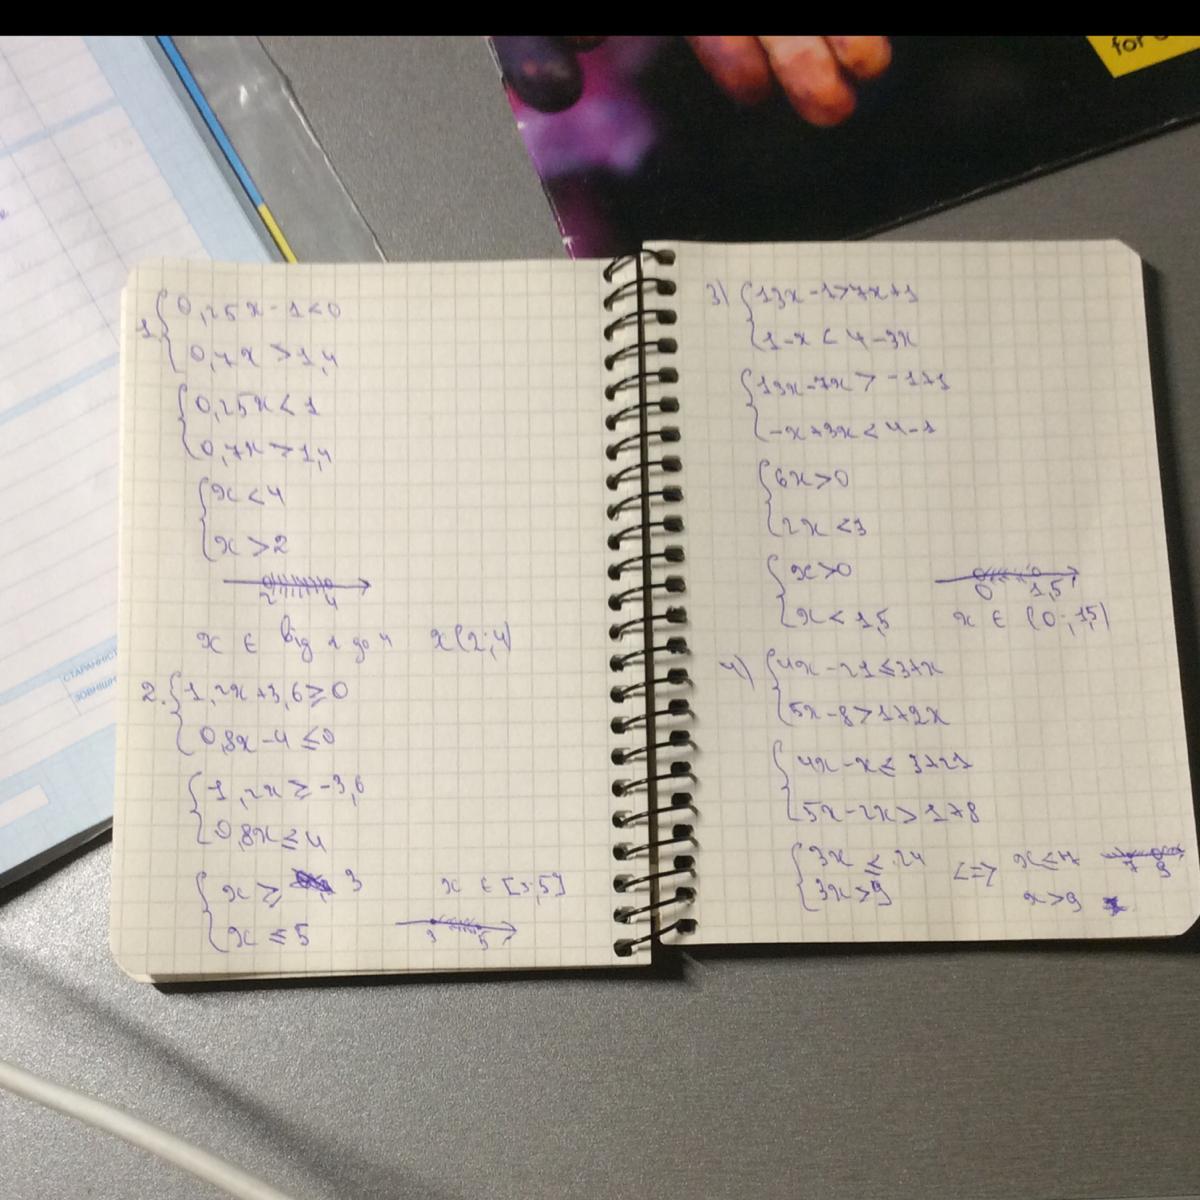 for
СТАРАННІСТ
ЗОВНІШН
1. { 0,25x - 1 < 0
0,7x > 1,4
{ 0,25x < 1
0,7x > 1,4
{ x < 4
x > 2
2 4
x ∈ від 2 до 4 x(2;4)
2. { 1,2x + 3,6 ≥ 0
0,8x - 4 ≤ 0
{ 1,2x ≥ -3,6
0,8x ≤ 4
{ x ≥ 3 x ∈ [3;5]
x ≤ 5 3 5
3) { 13x - 1 > 7x + 1
1 - x < 4 - 3x
{ 13x - 7x > -1 + 1
-x + 3x < 4 - 1
{ 6x > 0
2x < 3
{ x > 0 0 1,5
x < 1,5 x ∈ (0; 1,5)
4) { 4x - 21 ≤ 3 + x
5x - 8 > 1 + 2x
{ 4x - x ≤ 3 + 21
5x - 2x > 1 + 8
{ 3x ≤ 24 <=> x ≤ 7 7 9
3x > 9 x > 9